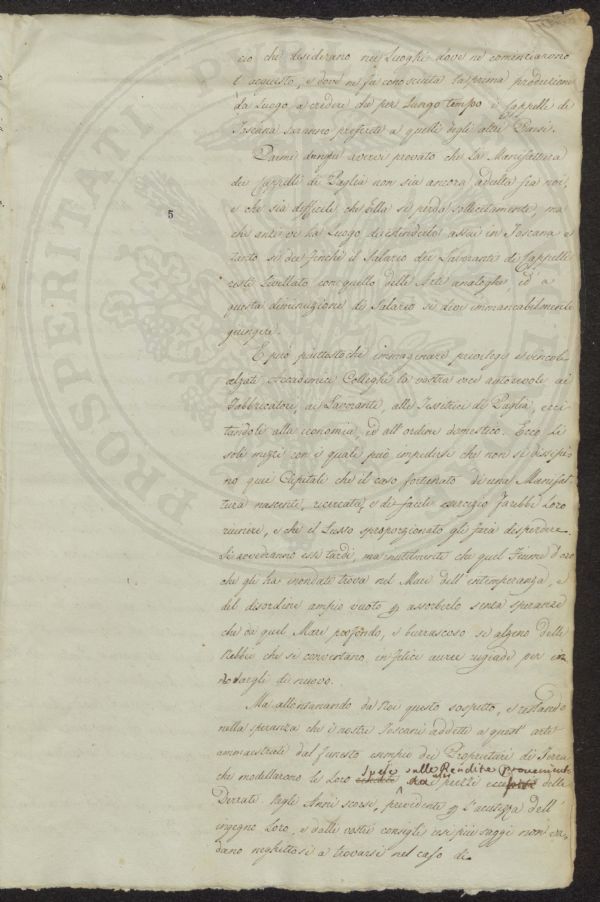 cio che desiderano nei Luoghi dove ne cominciarono
l'acquisto, e dove ne fu conosciuta la prima produzione
da Luogo a credere che per Lungo tempo i Cappelli di
Toscana saranno preferiti a quelli degli altri Paesi.
Parmi dunque avervi provato che la Manifattura
dei Cappelli di Paglia non sia ancora adulta fra noi,
e che sia difficile che ella si perda sollecitamente, ma
che anzi vi ha Luogo di estenderla assai in Toscana e
tanto si dee finchè il Salario dei Lavoranti di Cappelli
resti Livellato con quello delle Arti analoghe ed a
questa diminuzione di Salario si deve immancabilmente
giungere.
E però piuttosto che immaginare privilegi e vincoli
alzate Accademici Colleghi la vostra voce autorevole ai
Fabbricatori, ai Lavoranti, alle Tessitrici di Paglia, ecci-
tandole alla economia, ed all'ordine domestico. Ecco Le
sole mezzi con i quali può impedirsi che non si dissipi
no que Capitali che il caso fortunato di una Manifat-
tura nascente, ricercata, e di facile esercizio farebbe Loro
riunire, e che il Lusso sproporzionato gli farà disperdere.
Si avvedranno essi tardi, ma inutilmente che quel Fiume d'oro
che gli ha inondati trova nel Mare dell'intemperanza, e
del disordine ampio vuoto p assorberlo senza speranze
che da quel Mare profondo, e burrascoso si alzino delle
Nebbie che si convertano in felice auree rugiade per in
nodargli di nuovo.
Ma allontanando da Noi questo sospetto, e restando
nella speranza che i nostri Toscani addetti a quest'arte
ammaestrati dal funesto esempio dei Proprietari di Terra
che modellarono le Loro Spese sulle Rendite provenienti
dai prezzi delle
Derrate negli Anni scorsi, prevedente p l'acutezza dell'
ingegno Loro, e dalli vostri consigli resi più saggi non va-
dano neghittosi a trovarsi nel caso di
5
PROSPERITATI PUBLICAE